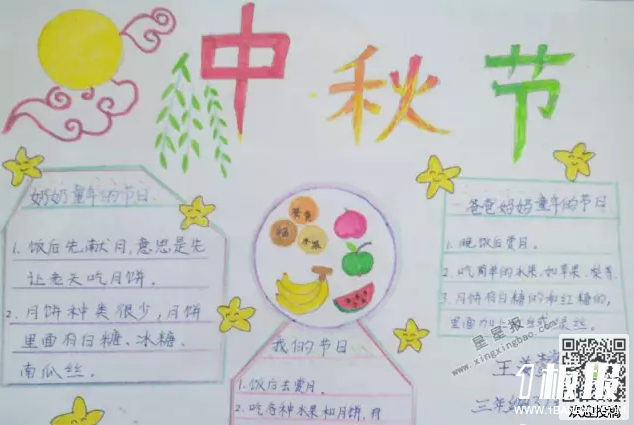 中秋节
奶奶童年的节日
1. 饭后先献月,意思是先
让老天吃月饼。
2. 月饼种类很少,月饼
里面有白糖、冰糖、
南瓜丝。
我们的节日
1. 饭后去赏月。
2. 吃各种水果和月饼,月
爸爸妈妈童年的节日
1. 晚饭后赏月。
2. 吃简单的水果,如苹果、梨等
3. 月饼有白糖的和红糖的,
里面
丝。
王
三年级
星星报
www.xingxingbao.com
板报
WWW.1BANBAO.COM
欢迎投稿